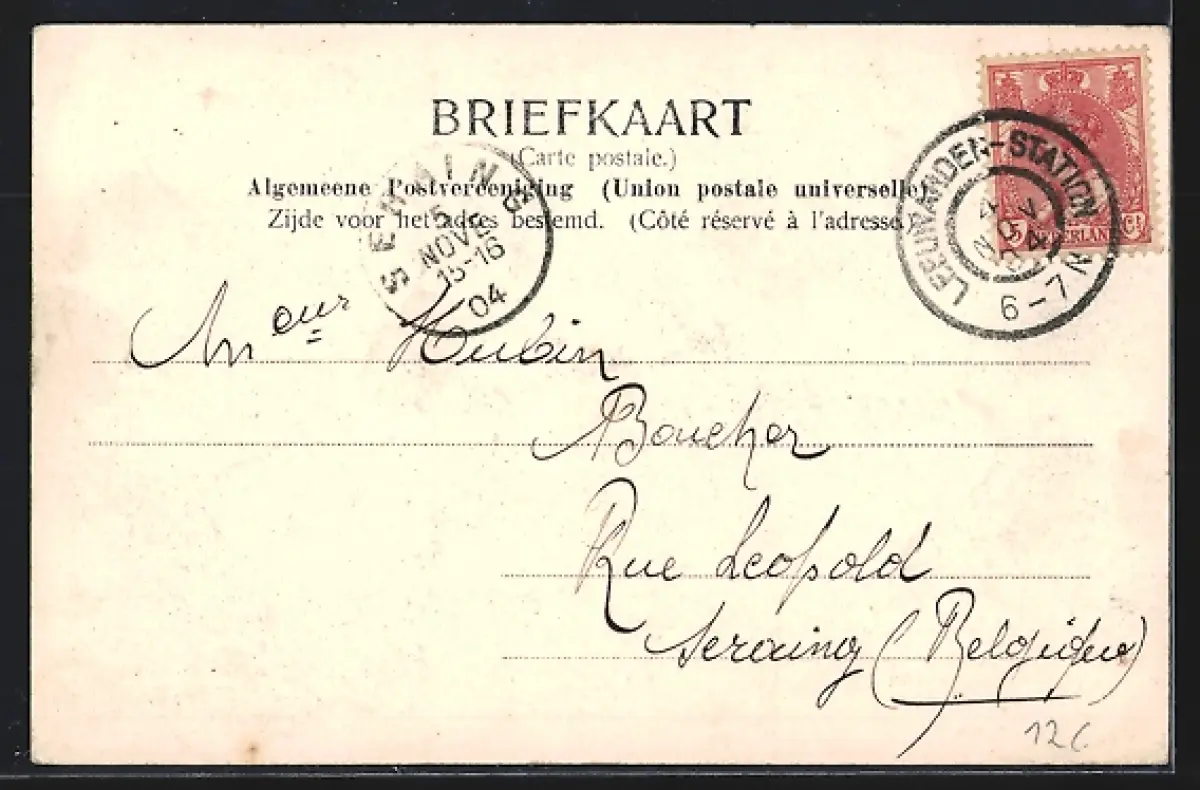 BRIEFKAART
(Carte postale.)
Algemeene Postvereeniging (Union postale universelle)
Zijde voor het adres bestemd. (Côté réservé à l'adresse)
SERAING
5
NOVE
15-16
04
LEEUWARDEN-STATION
4 NOV 04
6-7N
5 NEDERLAND Ct
Hubin
Boucher
Rue Leopold
Seraing (Belgique)
12